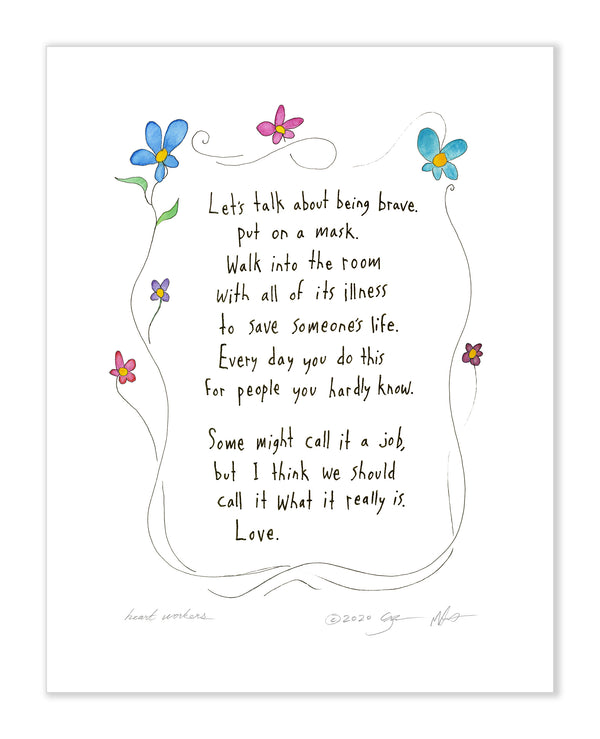 Let's talk about being brave.
put on a mask.
Walk into the room
with all of its illness
to save someone's life.
Every day you do this
for people you hardly know.
Some might call it a job,
but I think we should
call it what it really is.
Love.
heart workers
©2020